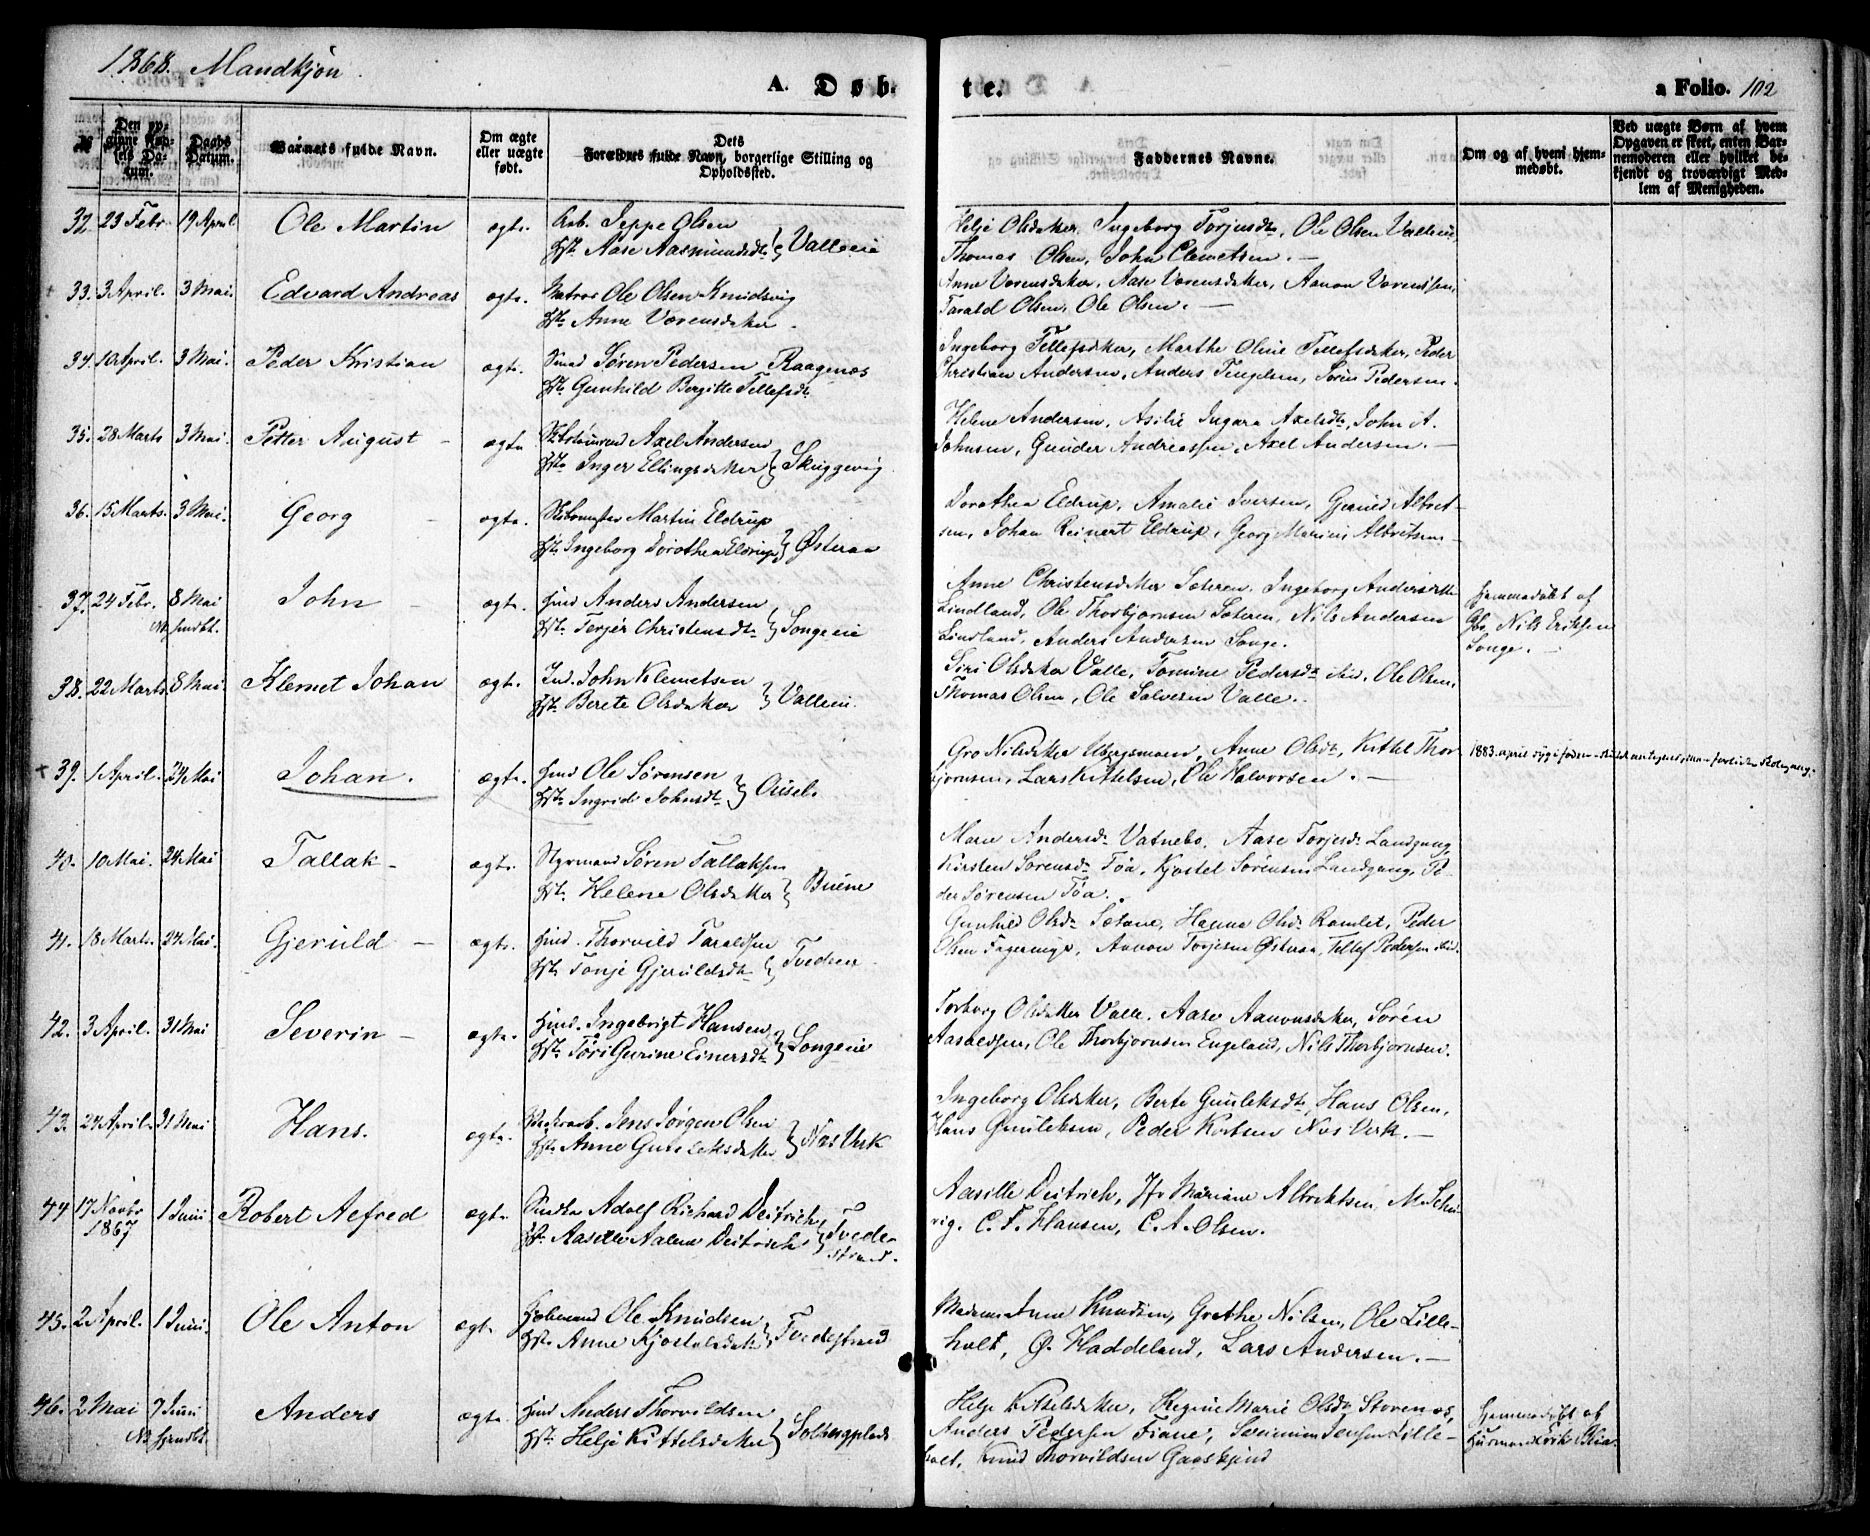 1868. Mandkjøn.
A. Døbte.
a Folio. 102
№
Den opgivne Fødsels Datum.
Daabs Datum.
Barnets fulde Navn.
Om ægte eller uægte født.
Dets Forældres fulde Navn, borgerlige Stilling og Opholdssted.
Faddernes Navne.
Om og af hvem hjemmedøbt.
Ved uægte Børn af hvem Opgaven er skeet, enten Barnemoderen eller hvilket bekjendt og troværdigt Medlem af Menigheden.
32. 23 Febr. 19 April Ole Martin ægte. Arb. Jeppe Olsen
Hst. Aase Aasmundsdt. } Valleeie
Helje Olsdatter, Ingeborg Torjusdt., Ole Olsen Valleeie,
Thomas Olsen, John Clemetsen. —
33. 3 April. 3 Mai. Edvard Andreas ægte. Matros Ole Olsen Knudsvig
Hst. Anne Vorensdatter.
Anne Vorensdatter, Aase Vorensdatter, Aanon Vorenssen,
Tarald Olsen, Ole Olsen. —
34. 10 April. 3 Mai. Peder Kristian ægte. Smed Søren Pedersen Raagenæs
Hst. Gunhild Bergitte Tellefsdt.
Ingeborg Tellefsdatter, Marthe Oline Tellefsdatter, Peder
Christian Andersen, Anders Tengelsen, Søren Pedersen.
35. 28 Marts 3 Mai. Petter August — ægte Axel Andersen
Hst. Inger Ellingsdatter } Skuggevig
Helene Andersen, Asilie Ingara Axelsdt., John A.
Johnsen, Gunder Andreassen, Axel Andersen. —
36. 15 Marts. 3 Mai. Georg — ægte. Martin Eldrup
Hst. Ingeborg Dorothea Eldrup } Østeraa
Dorothea Eldrup, Amalie Iversen, Gjeruld Albret-
sen, Johan Reinert Eldrup, Georg Marius Albretsen —
37. 24 Febr. 8 Mai John — ægte. Hmd Anders Andersen
Nb. hmdbt. Hst. Terjer Christensdt. } Songeeie
Anne Christensdatter Sæteren, Ingeborg Andersdatter
Lindland, Ole Thorbjørnsen Sæteren, Nils Andersen
Lindland, Anders Andersen Songe.
Hjemmedøbt af
Gbr. Nils Eriksen
Songe. —
38. 22 Marts 8 Mai. Klemet Johan ægte. Ind. John Klemetsen
Hst. Berete Olsdatter } Valleeie.
Siri Olsdatter Valle, Tomine Pedersdt. ibid, Ole Olsen,
Thomas Olsen, Ole Salvesen Valle.
39. 1 April. 24 Mai Johan. ægte. Hmd Ole Sørensen
Hst. Ingrid Johnsdt. } Ousel.
Gro Nilsdatter Ubergsmoen, Anne Olsdt., Kittel Thor-
bjørnsen, Lars Kittelsen, Ole Halvorsen. —
1883. april
40. 10 Mai. 24 Mai Tallak — ægte. Styrmand Søren Tallaksen
Hst. Helene Olsdatter } Buene
Maren Andersdt. Vatnebo, Aase Torjesdt. Landgang,
Kirsten Sørensdt. Tøa, Kjøstel Sørensen Landgang, Pe-
der Sørensen Tøa.
41. 18 Marts. 24 Mai. Gjeruld — ægte. Hmd. Thorvild Taraldsen
Hst. Tonje Gjeruldsdt. } Tvedsen
Gunhild Olsdt. Sætane, Hanna Olsdt. Ramlet, Peder
Olsen Fagermyr, Aanon Torjesen Østeraa, Tellef Pedersen ibid.
42. 3 April. 31 Mai Severin — ægte. Hmd. Ingebrigt Hansen
Hst. Tøri Gurine Einersdt. } Songeeie
Torborg Olsdatter Valle, Aase Aanonsdatter, Søren
Aasvaldsen, Ole Thorbjørnsen Engeland, Nils Thorbjørnsen.
43. 24 April. 31 Mai Hans. ægte. Jens Jørgen Olsen
Hst. Anne Gunleksdatter } Næs Verk
Ingeborg Olsdatter, Berte Gunleksdt., Hans Olsen,
Hans Gunleksen, Peder Knutsen Næs Verk. —
44 17 Novbr 1867 1 Juni Robert Alfred ægte. Adolf Richard Deitrich
Hst. Aasille Aalene Deitrich } Tvede-
strand.
Aasille Deitrich, Jfr Mariane Albrektsen, M. Schu-
rig. C. F. Hansen, C. A. Olsen.
45. 2 April. 1 Juni. Ole Anton ægt. Ole Knudsen
Hst. Anne Kjøstelsdatter } Tvedestrand
Madame Anne Knudsen, Grethe Nilsen, Ole Lille-
holt, Ø. Haddeland, Lars Andersen. —
46. 2 Mai 7 Juni Anders ægte. Hmd Anders Thorvildsen
Nb. hjmdbt. Hst. Helje Kittelsdatter } Solbergplads
Helje Kittelsdatter, Regine Marie Olsdt. Storenæs,
Anders Pedersen Fiane, Jensen Lille-
holt, Knud Thorvildsen Gaaskjend
Hjemmedøbt af
Huusmand Erik